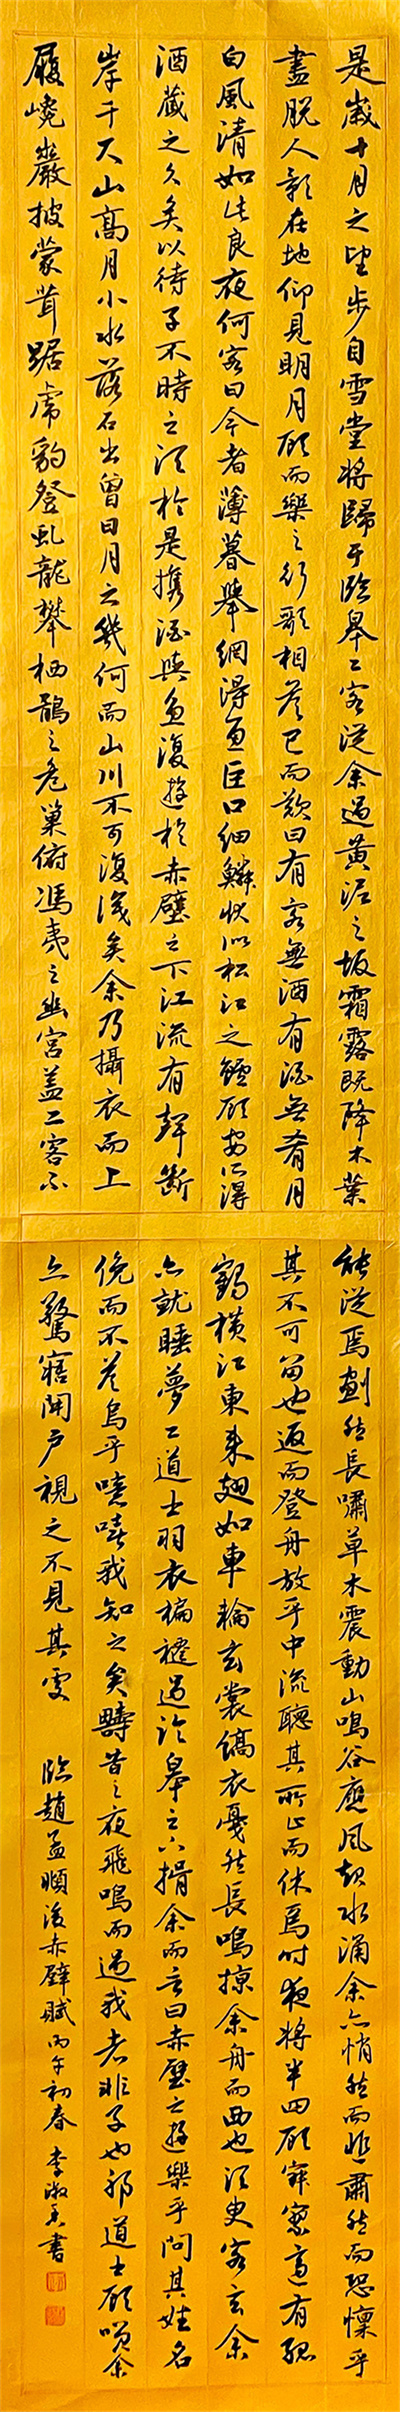 是歲十月之望步自雪堂將歸于臨皋二客從余過黃泥之坂霜露既降木葉
盡脫人影在地仰見明月顧而樂之行歌相答已而歎曰有客無酒有酒無肴月
白風清如此良夜何客曰今者薄暮舉網得魚巨口細鱗狀似松江之鱸顧安所得
酒藏之久矣以待子不時之須於是攜酒與魚復遊於赤壁之下江流有聲斷
岸千尺山高月小水落石出曾日月之幾何而山川不可復識矣余乃攝衣而上
履巉巖披蒙茸踞虎豹登虬龍攀栖鶻之危巢俯馮夷之幽宮蓋二客不
能從焉劃然長嘯草木震動山鳴谷應風起水涌余亦悄然而悲肅然而恐懍乎
其不可留也返而登舟放乎中流聽其所止而休焉時夜將半四顧寂寥適有孤
鶴橫江東來翅如車輪玄裳縞衣戛然長鳴掠余舟而西也須臾客去余
亦就睡夢二道士羽衣蹁躚過臨皋之下揖余而言曰赤壁之遊樂乎問其姓名
俛而不答烏乎噫嘻我知之矣疇昔之夜飛鳴而過我者非子也邪道士顧笑余
亦驚寤開戶視之不見其處 臨趙孟頫後赤壁賦丙午初春 李淑書